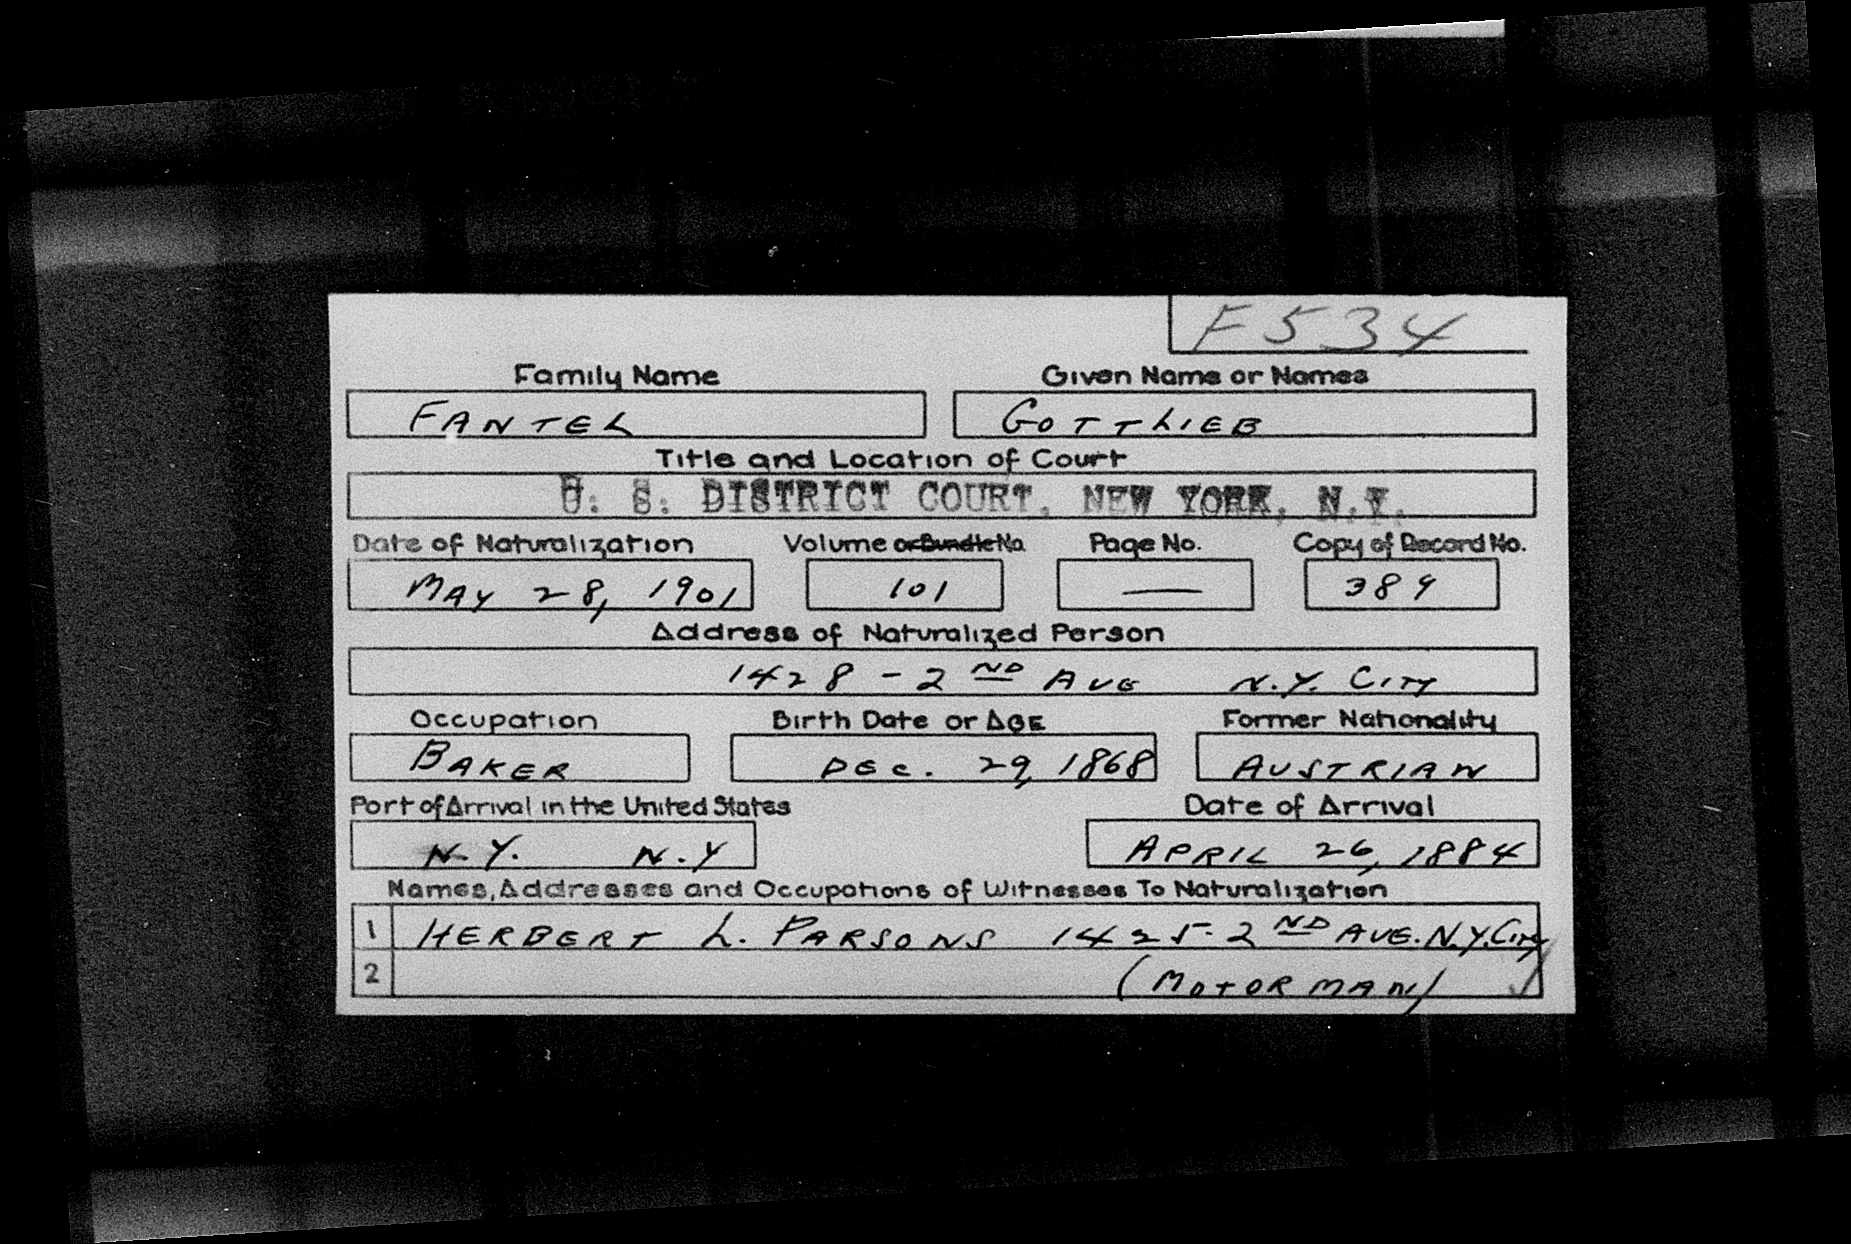 F534
Family Name Given Name or Names
FANTEL GOTTLIEB
Title and Location of Court
U. S. DISTRICT COURT, NEW YORK, N.Y.
Date of Naturalization Volume or Bundle No. Page No. Copy of Record No.
MAY 28, 1901 101 — 389
Address of Naturalized Person
1428 - 2ND AVE N.Y. CITY
Occupation Birth Date or AGE Former Nationality
BAKER DEC. 29, 1868 AUSTRIAN
Port of Arrival in the United States Date of Arrival
N.Y. N.Y APRIL 26, 1884
Names, Addresses and Occupations of Witnesses To Naturalization
1 HERBERT L. PARSONS 1425-2ND AVE. N.Y. CITY
2 (MOTORMAN)